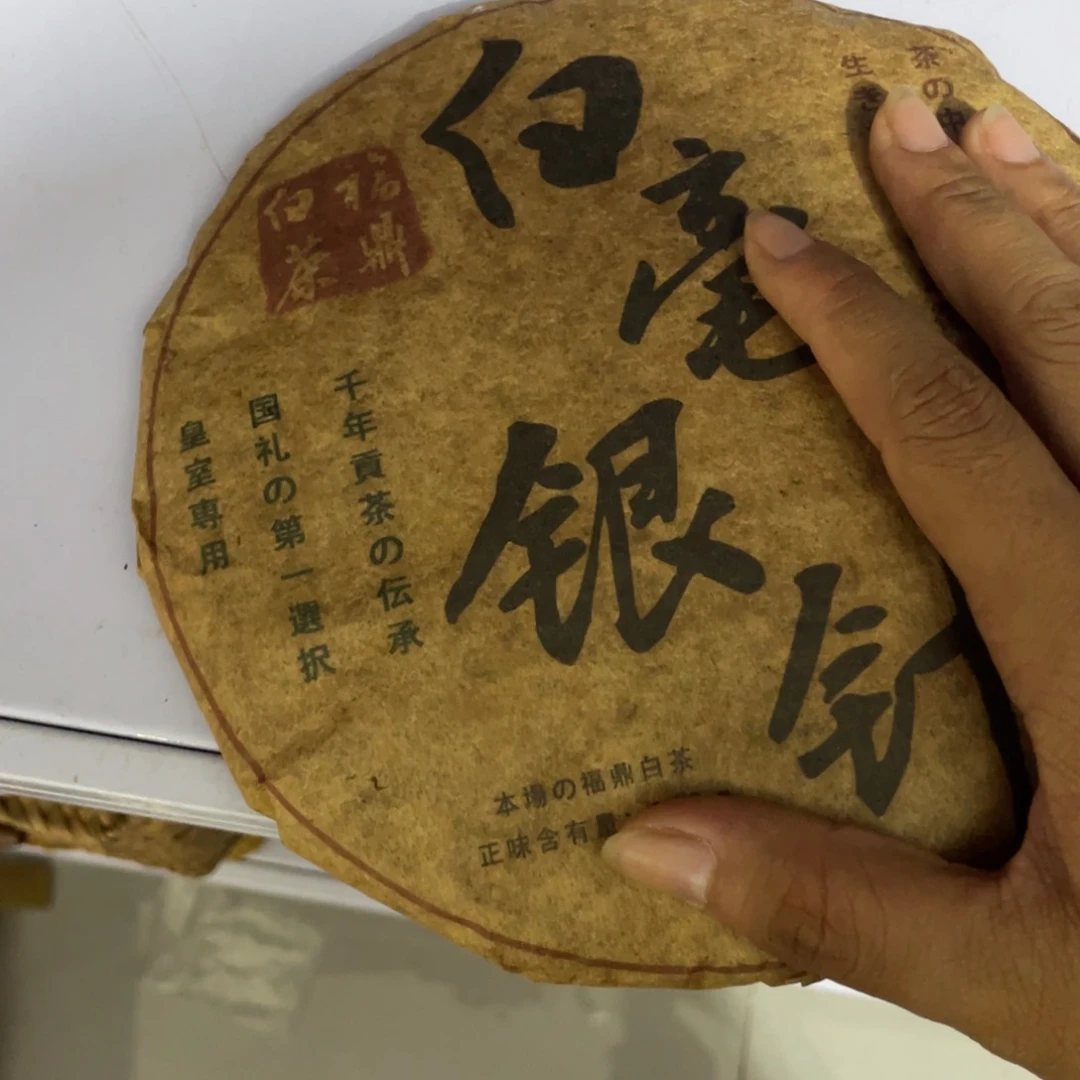 白毫
银针
福鼎
白茶
茶の中
生
千年貢茶の伝承
国礼の第一選択
皇室専用
本場の福鼎白茶
正味含有量: